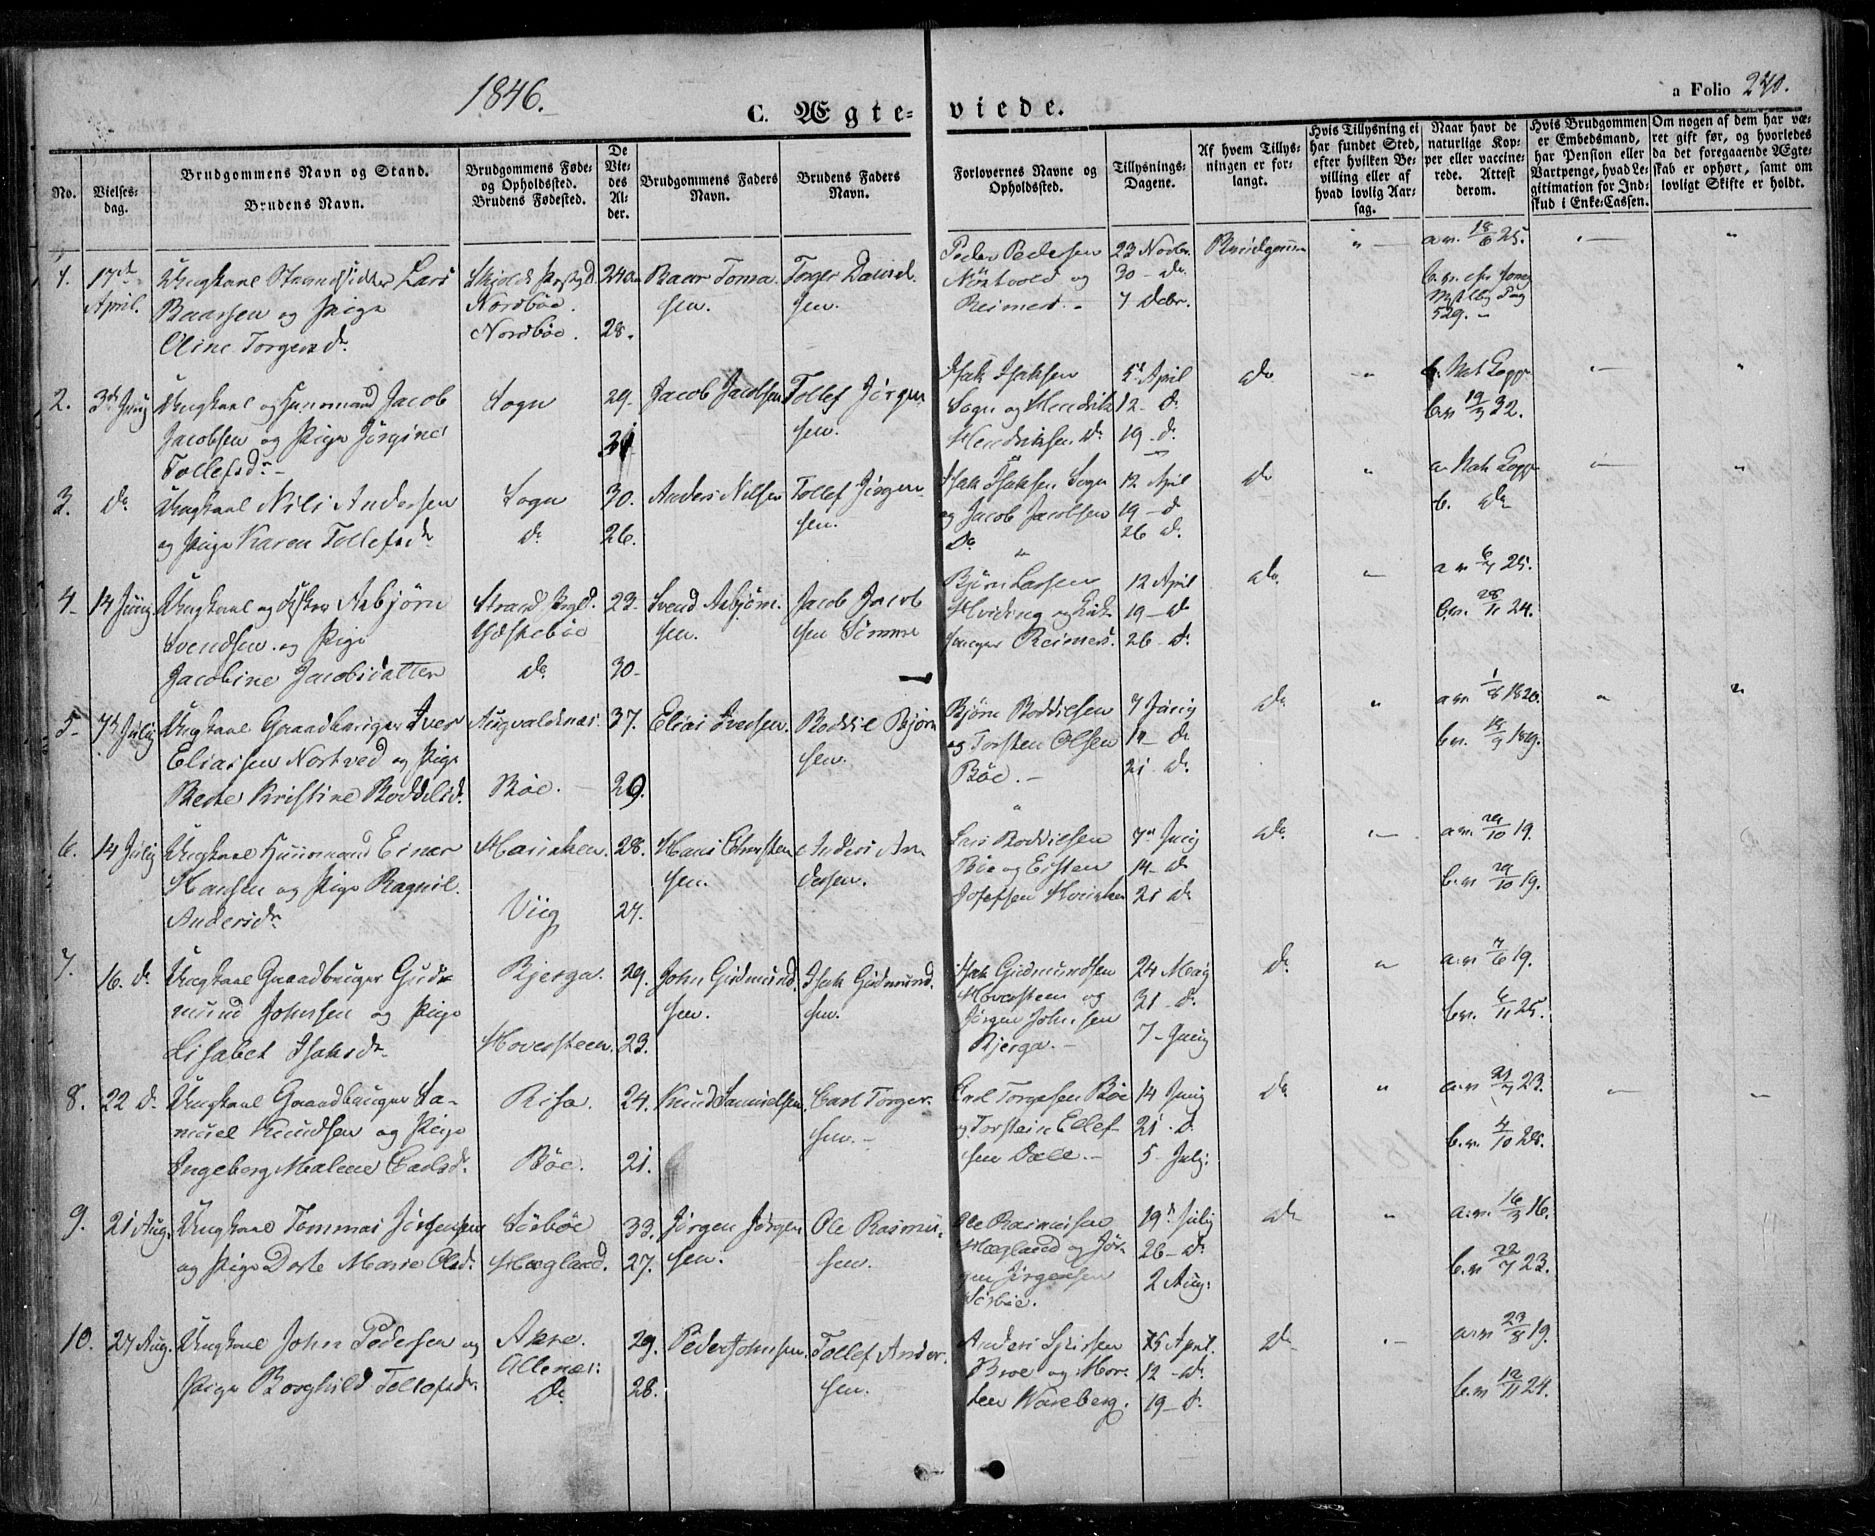 1846.
C. Ægteviede.
a Folio 240.
No.
Vielsesdag.
Brudgommens Navn og Stand.
Brudens Navn.
Brudgommens Føde- og Opholdssted.
Brudens Fødested.
De Viedes Alder.
Brudgommens Faders Navn.
Brudens Faders Navn.
Forlovernes Navne og Opholdssted.
Tillysnings-Dagene.
Af hvem Tillysningen er forlangt.
Hvis Tillysning ei har fundet Sted, efter hvilken Bevilling eller af hvad lovlig Aarsag.
Naar havt de naturlige Kopper eller vaccinerede. Attest derom.
Hvis Brudgommen er Embedsmand, har Pension eller Vartpenge, hvad Legitimation for Indskud i Enke-Cassen.
Om nogen af dem har været gift før, og hvorledes da det foregaaende Ægteskab er ophørt, samt om lovligt Skifte er holdt.
1. 17de April. Ungkarl Lars Baarsen og Pige Oline Torgersdr.
Nordbøe. Nordbøe.
24 28.
Baar Tomasen. Torger Davidsen.
Peder Pedersen og Reimers.
23 Novbr. 30 - do. 7 Debr.
Brudgommen
a.v. 18/6 25.
529.
2. 3de Juny Ungkarl og Huusmand Jacob Jacobsen og Pige Jørgine Tollefsdr.
Sogn
29. 31
Jacob Jacobsen Tollef Jørgensen.
Isak Isaksen Sogn og Hendrik Hendriksen do
5te April 12 - do 19 - do
do
b.v. 19/9 32.
3. do Ungkarl Nils Andersen og Pige Karen Tollefsdr
Sogn do
30. 26.
Anders Nilsen Tollef Jørgensen.
Isak Isaksen Sogn og Jacob Jacobsen do
12 April 19 - do 26 do.
do
b. do
4. 14 Juny Ungkarl og Fisker Asbjørn Svendsen og Pige Jacobine Jacobsdatter
Strand Pgld. do
23. 30
Svend Asbjørnsen. Jacob Jacobsen Sømme
Bjørn Larsen Hviding og Reimers.
12 April 19 - do 26 - do.
do
a.v. 6/7 25.
b.v. 28/11 24.
5. 7de July Ungkarl Gaardbruger Iver Eliassen Nortved og Pige Berte Kristine Boddelsdr.
Augvaldsnæs. Bøe.
37. 29.
Elias Iversen. Boddel Bjørnsen.
Bjørn Boddelsen og Torsten Olsen Bøe.
7 Juny 14 - do 21 - do.
do
a.v. 1/8 1820.
b.v. 18/9 1819.
6. 14 July Ungkarl Huusmand Einar Hansen og Pige Ragnil. Andersdr.
Viig
28. 24.
Hans Christensen. Anders Andersen.
Lars Boddelsen Bøe og Eisten Josefsen
7de Juny 14 - do 21 do.
do.
a.v. 29/10 19.
b.v. 29/10 19.
7. 16. do. Ungkarl Gaardbruger Gudmund Johnsen og Pige Lisabet Isaksdr.
Bjerga. Hovesteen.
29. 23.
John Gudmundsen. Isak Gudmundsen.
Isak Gudmundsen Hovesteen og Jørgen Johnsen Bjerga.
24 May 31 - do. 7 - Juny
do.
a.v. 7/6 19.
b.v. 6/11 25.
8. 22 do. Ungkarl Gaardbruger Samuel Knudsen og Pige Ingeborg Malene Carlsdr.
Risa. Bøe.
24. 21.
Knud Samuelsen. Carl Torgersen.
Carl Torgersen Bøe og Torstein Edlefsen Dale.
14 Juny 21 - do. 5 - July.
do.
a.v. 21/7 23.
b.v. 4/10 28.
9. 21 Aug. Ungkarl Tommas Jørgensen og Pige Dorte Marie Olsdr.
Sørbøe Hægland.
33. 27.
Jørgen Jørgensen. Ole Rasmussen.
Ole Rasmussen Hægland og Jørgen Jørgensen Sørbøe.
19de July 26 - do. 2 Aug:
do
a.v. 16/3 16.
b.v. 22/7 23.
10. 27 Aug. Ungkarl John Pedersen og Pige Borghild Tollefsdr.
do
29. 28.
Peder Johnsen. Tollef Andersen.
Anders og Morten Wareberg.
5 April. 12 - do. 19 - do.
do.
a.v. 23/8 19.
b.v. 12/11 24.